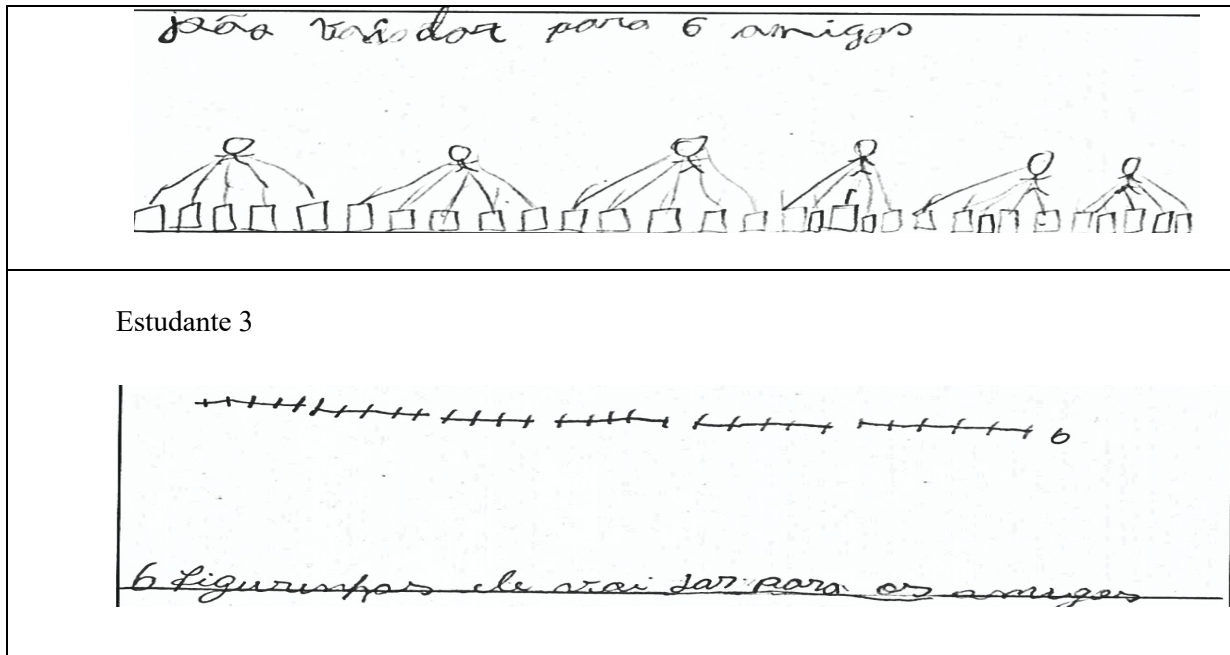 joão vai dar para 6 amigos
Estudante 3
6
6 figurinhas ele vai dar para os amigos